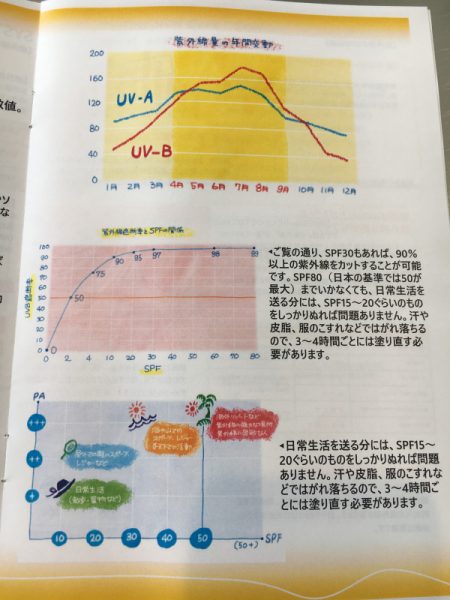 紫外線量の年間変動
200
160
120
80
40
0
UV-A
UV-B
1月 2月 3月 4月 5月 6月 7月 8月 9月 10月 11月 12月
紫外線遮断率とSPFの関係
100
90
80
70
60
50
40
30
20
10
0
50
75
90
95
97
98
99
0 2 4 10 20 30 40 50 60 70 80
SPF
◀ご覧の通り、SPF30もあれば、90%
以上の紫外線をカットすることが可能
です。SPF80（日本の基準では50が
最大）までいかなくても、日常生活を
送る分には、SPF15～20ぐらいのもの
をしっかりぬれば問題ありません。汗や
皮脂、服のこすれなどではがれ落ちる
ので、3～4時間ごとには塗り直す必
要があります。
PA
+++
++
+
日常生活
10 20 30 40 50 SPF
(50+)
◀日常生活を送る分には、SPF15～
20ぐらいのものをしっかりぬれば問題
ありません。汗や皮脂、服のこすれな
どではがれ落ちるので、3～4時間ご
とには塗り直す必要があります。
数値。